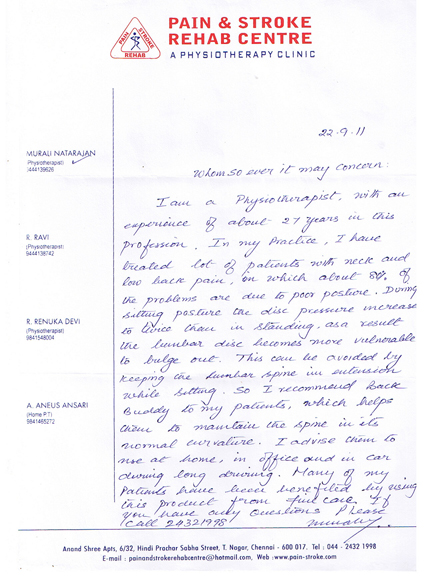 PAIN & STROKE
REHAB CENTRE
A PHYSIOTHERAPY CLINIC
PAIN
STROKE
REHAB
22.9.11
Whom so ever it may concern:
MURALI NATARAJAN
(Physiotherapist)
I am a Physiotherapist, with an
experience of about 27 years in this
profession. In my Practice, I have
treated lot of patients with neck and
low back pain, in which about 80% of
the problems are due to poor posture. During
sitting posture the disc pressure increase
to twice than in standing, as a result
the lumbar disc becomes more vulnerable
to bulge out. This can be avoided by
keeping the lumbar spine in extension
while sitting. So I recommend Back
Buddy to my patients, which helps
them to maintain the spine in its
normal curvature. I advise them to
use at home, in office and in car
during long driving. Many of my
Patients have been benefited by using
this product from If
you have any Questions Please
Call 24321998
R. RAVI
(Physiotherapist)
9444138742
R. RENUKA DEVI
(Physiotherapist)
9841548004
A. ANEUS ANSARI
(Home P.T)
9841465272
Anand Shree Apts, 6/32, Hindi Prachar Sabha Street, T. Nagar, Chennai - 600 017. Tel : 044 - 2432 1998
E-mail : painandstrokerehabcentre@hotmail.com, Web : www.pain-stroke.com